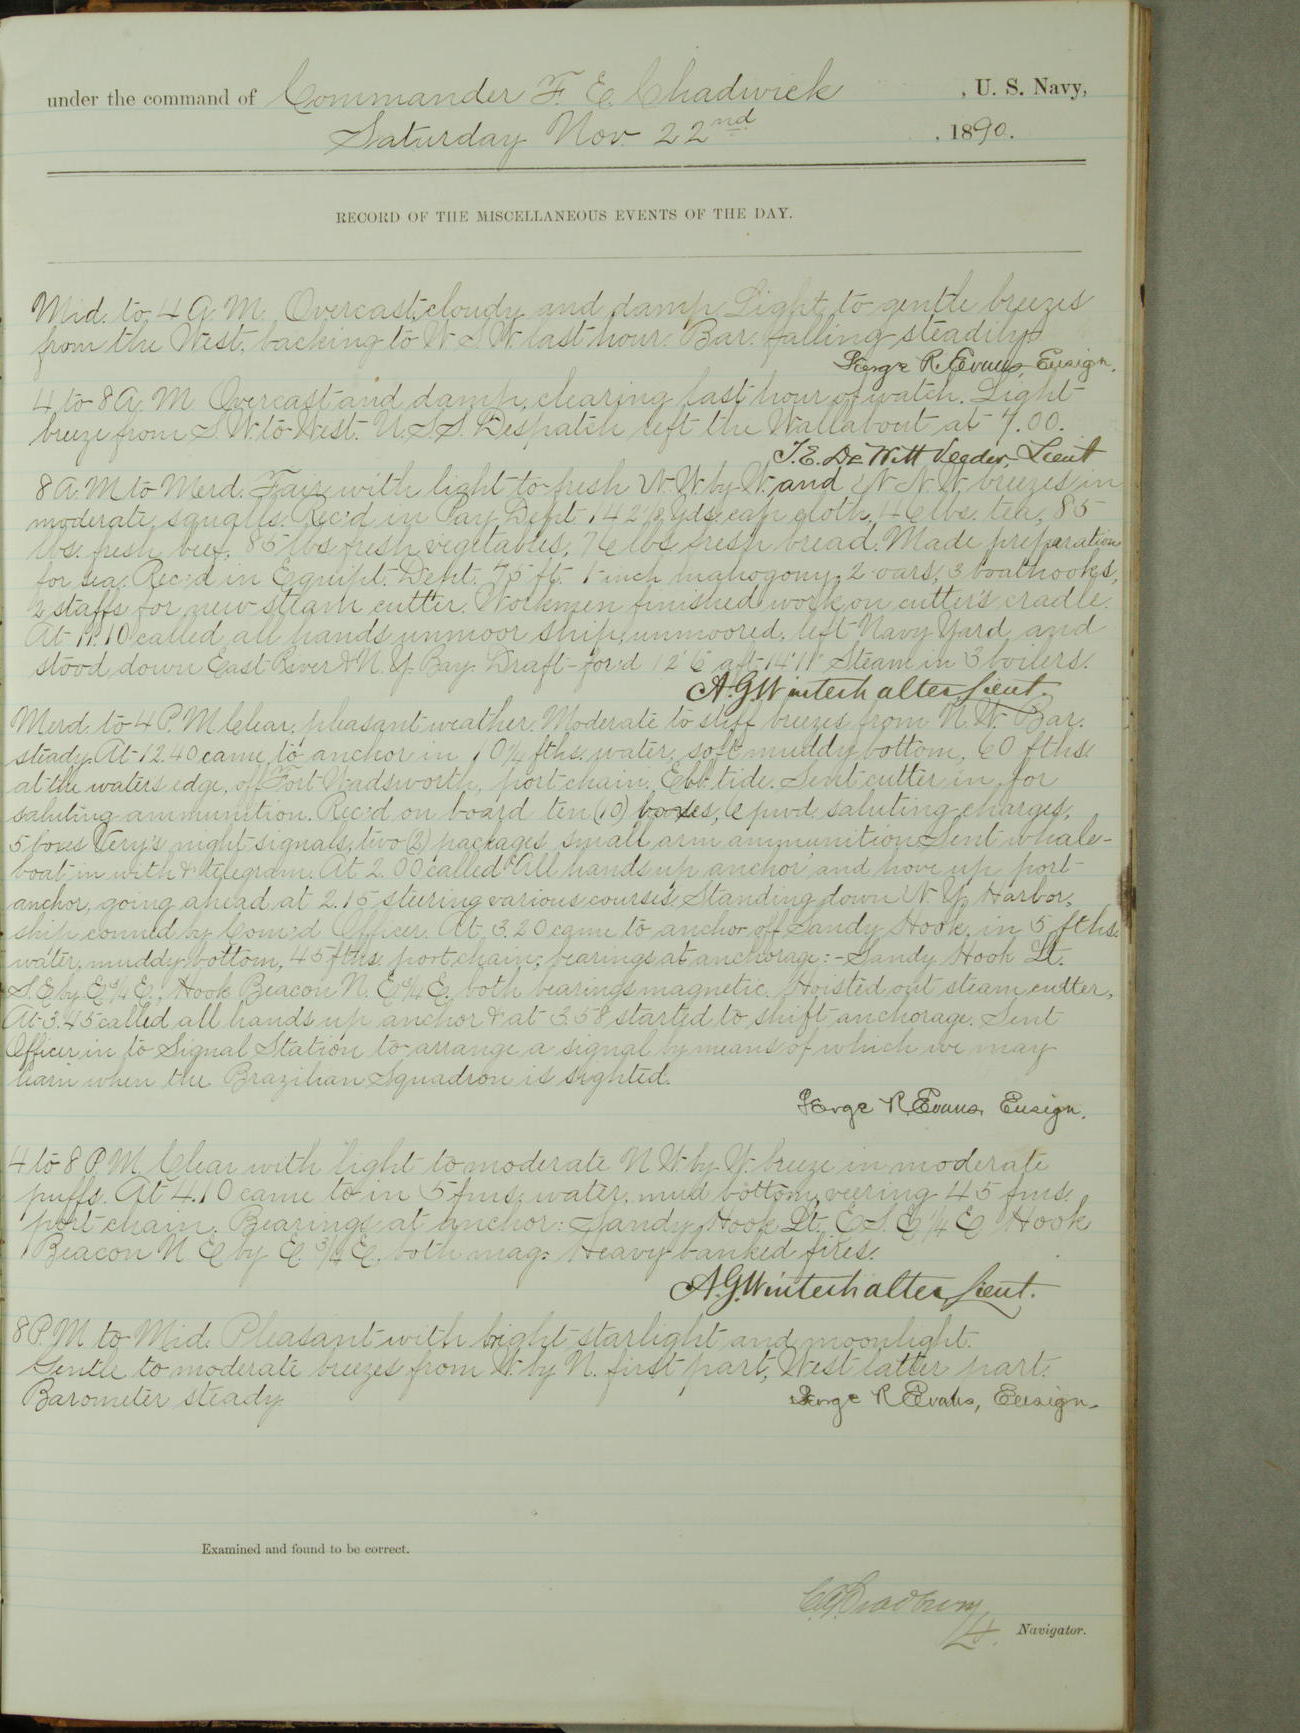 under the command of Commander F. E. Chadwick , U. S. Navy,
Saturday Nov. 22nd , 1890.
RECORD OF THE MISCELLANEOUS EVENTS OF THE DAY.
Mid. to 4 A. M. Overcast, cloudy and damp. Light to gentle breezes
from the West, backing to W. S. W. last hour. Bar. falling steadily.
George R. Evans, Ensign.
4 to 8 A. M. Overcast and damp, clearing last hour of watch. Light
breeze from S. W. to West. U. S. S. Despatch left the Wallabout at 7.00.
T. E. De Witt Veeder, Lieut
8 A. M. to Merd. Fair with light to fresh N. W. by W. and W. N. W. breezes in
moderate squalls. Rec'd in Pay Dept. 142 yds. cap cloth, 46 lbs. tea, 85
lbs. fresh beef, 85 lbs fresh vegetables, 76 lbs fresh bread. Made preparation
for sea. Rec'd in Equipt. Dept. 75 ft. 1 inch mahogony, 2 oars, 3 boathooks,
2 staffs for new steam cutter. Workmen finished work on cutter's cradle.
At 11.10 called all hands unmoor ship, unmoored, left Navy Yard and
stood down East River & N. Y. Bay. Draft - for'd 12' 6" aft 14' 11" Steam in 3 boilers.
A. G. Winterhalter, Lieut.
Merd to 4 P. M. Clear, pleasant weather. Moderate to stiff breezes from N. W. Bar.
steady. At 12.40 came to anchor in 10 1/4 fths. water, soft muddy bottom, 60 fths.
at the waters edge, off Fort Wadsworth, port chain. Ebb tide. Sent cutter in for
saluting ammunition. Rec'd on board ten (10) boxes, 6 pwd. saluting charges,
5 boxes Very's night signals, two (2) packages small arm ammunition. Sent whale-
boat in with telegram. At 2.00 called "All hands up anchor" and hove up port
anchor, going ahead at 2.15 steering various courses, Standing down N. Y. Harbor,
ship conned by Com'd Officer. At 3.20 came to anchor off Sandy Hook, in 5 fths.
water, muddy bottom, 45 fths. port chain; bearings at anchorage: - Sandy Hook Lt.
S. E. by E. 3/4 E., Hook Beacon N. E. 3/4 E. both bearings magnetic. Hoisted out steam cutter,
At 3.45 called all hands up anchor & at 3.58 started to shift anchorage. Sent
Officer in to Signal Station to arrange a signal by means of which we may
learn when the Brazilian Squadron is sighted.
George R. Evans, Ensign.
4 to 8 P. M. Clear with light to moderate N. W. by W. breeze in moderate
puffs. At 4.10 came to in 5 fms. water, mud bottom, veering 45 fms.
port chain. Bearings at anchor: Sandy Hook Lt. E. S. E. 1/4 E. Hook
Beacon N. E. by E. 3/4 E. both mag. Heavy banked fires.
A. G. Winterhalter, Lieut.
8 P. M. to Mid. Pleasant with bright starlight and moonlight.
Gentle to moderate breezes from W. by N. first part, West latter part.
Barometer steady.
George R. Evans, Ensign.
Examined and found to be correct.
Navigator.